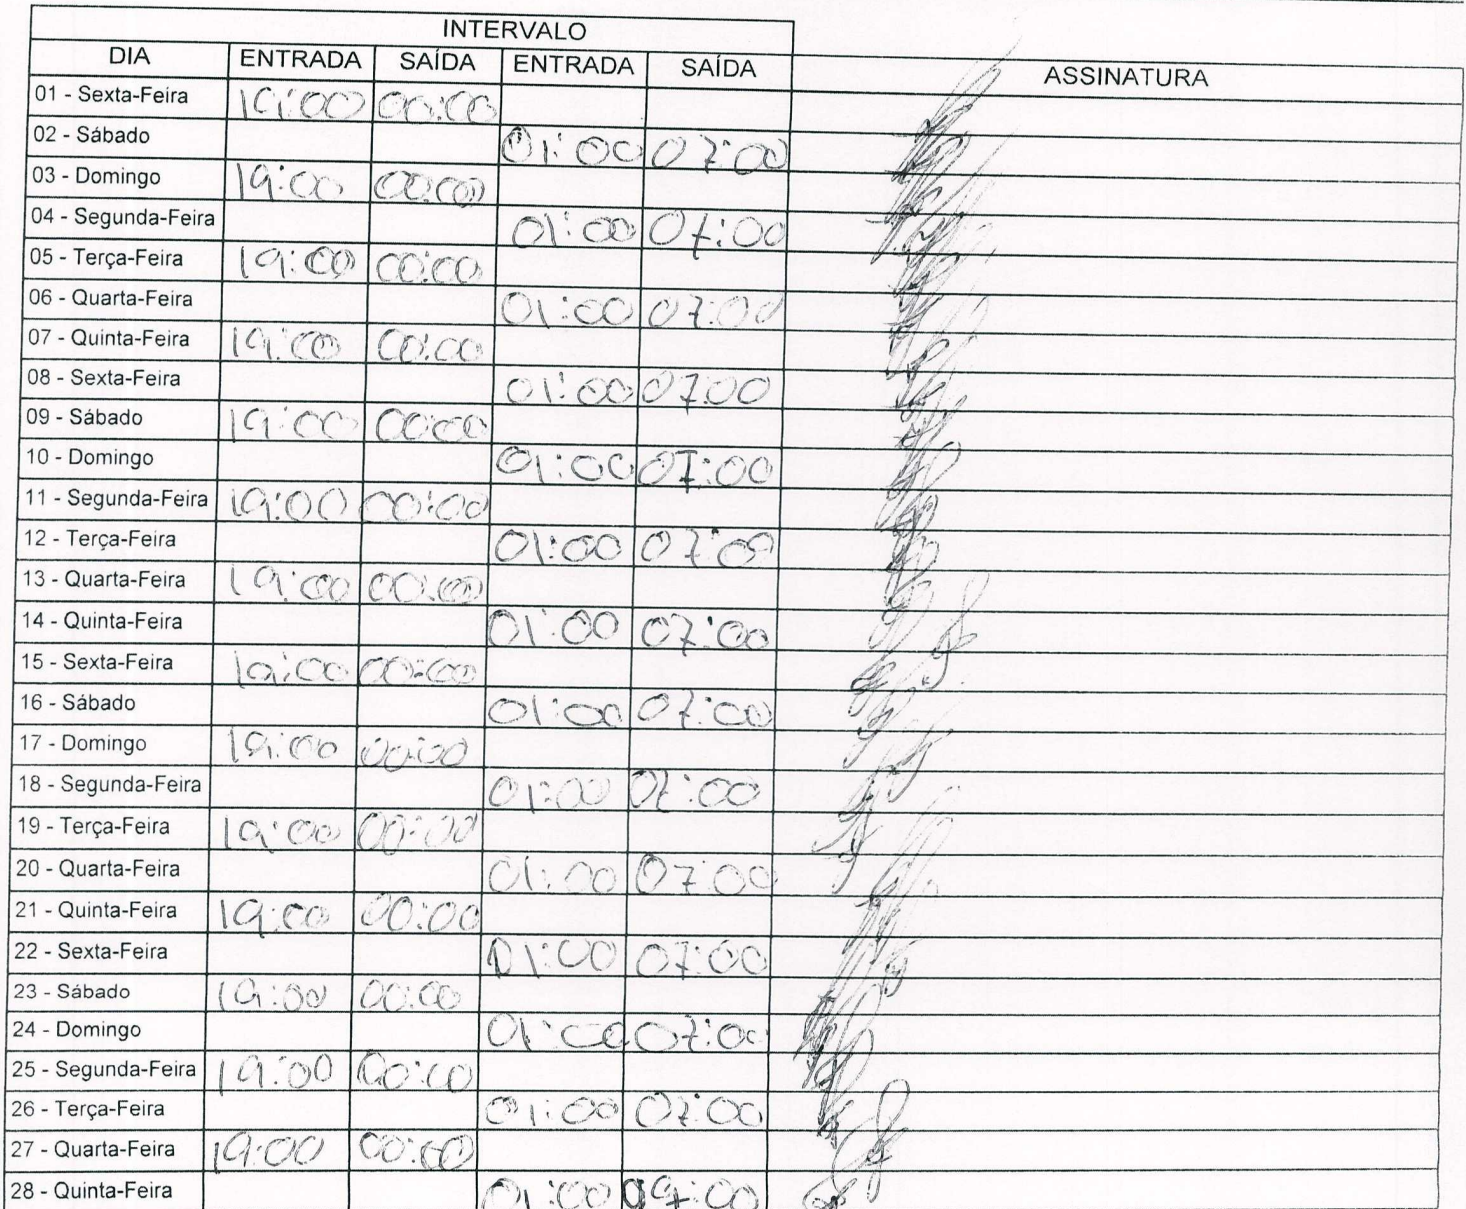 INTERVALO
DIA ENTRADA SAÍDA ENTRADA SAÍDA ASSINATURA
01 - Sexta-Feira 19:00 00:00
02 - Sábado 01:00 07:00
03 - Domingo 19:00 00:00
04 - Segunda-Feira 01:00 07:00
05 - Terça-Feira 19:00 00:00
06 - Quarta-Feira 01:00 07:00
07 - Quinta-Feira 19:00 00:00
08 - Sexta-Feira 01:00 07:00
09 - Sábado 19:00 00:00
10 - Domingo 01:00 07:00
11 - Segunda-Feira 19:00 00:00
12 - Terça-Feira 01:00 07:00
13 - Quarta-Feira 19:00 00:00
14 - Quinta-Feira 01:00 07:00
15 - Sexta-Feira 19:00 00:00
16 - Sábado 01:00 07:00
17 - Domingo 19:00 00:00
18 - Segunda-Feira 01:00 07:00
19 - Terça-Feira 19:00 00:00
20 - Quarta-Feira 01:00 07:00
21 - Quinta-Feira 19:00 00:00
22 - Sexta-Feira 01:00 07:00
23 - Sábado 19:00 00:00
24 - Domingo 01:00 07:00
25 - Segunda-Feira 19:00 00:00
26 - Terça-Feira 01:00 07:00
27 - Quarta-Feira 19:00 00:00
28 - Quinta-Feira 01:00